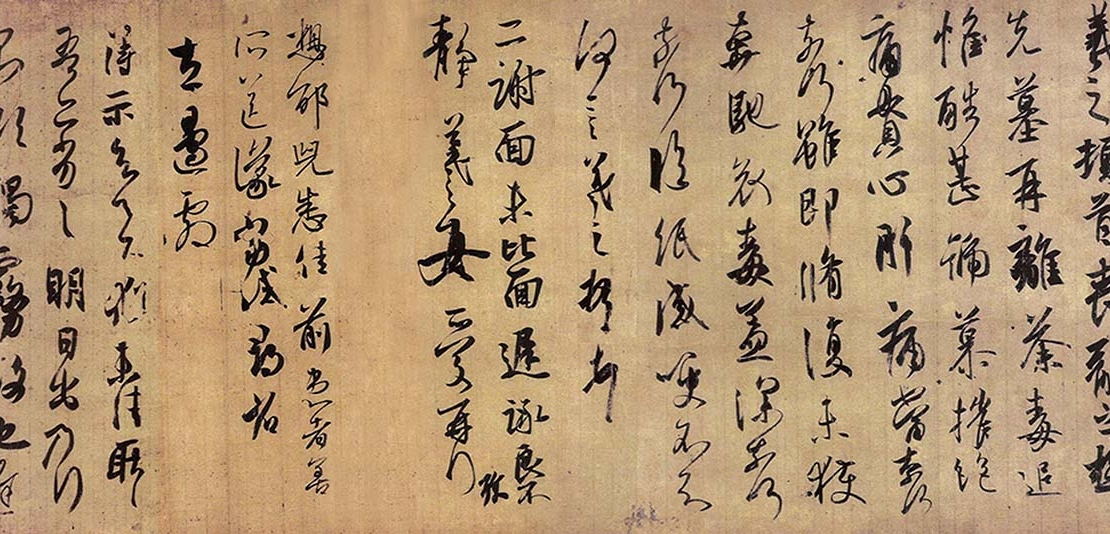 羲之頓首喪亂之極
先墓再離荼毒追
惟酷甚號慕摧絕
痛貫心肝痛當奈何
奈何雖即脩復未獲
奔馳哀毒益深奈何
奈何臨紙感哽不知
何言羲之頓首頓首
二謝面未比面遲詠良不
靜羲之女愛再拜
珍
想邵兒悉佳前患者善
所送議當試尋省
左邊劇
得示知足下猶未佳耿耿
吾亦劣劣明日出乃行
不欲觸霧故也遲